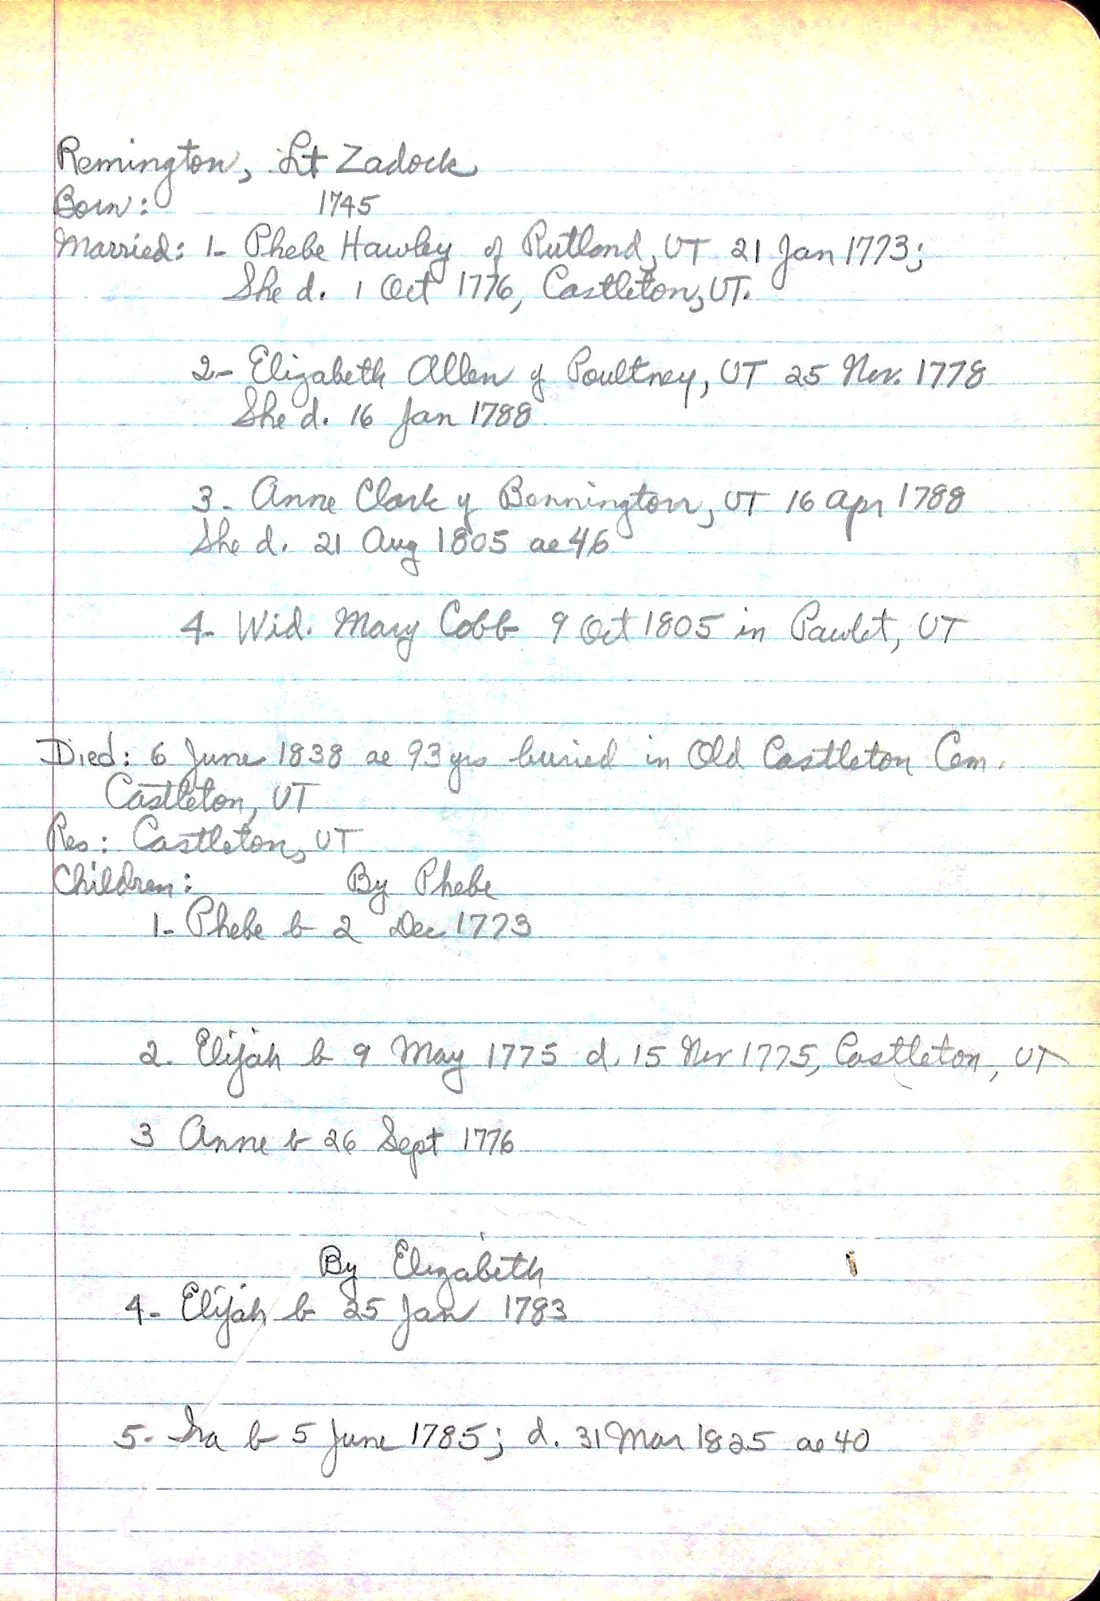 Remington, Lt Zadock
Born: 1745
Married: 1- Phebe Hawley of Rutland, VT 21 Jan 1773;
She d. 1 Oct 1776, Castleton, VT.
2- Elizabeth Allen of Poultney, VT 25 Nov. 1778
She d. 16 Jan 1788
3- Anne Clark of Bennington, VT 16 Apr 1788
She d. 21 Aug 1805 ae 46
4- Wid. Mary Cobb 9 Oct 1805 in Pawlet, VT
Died: 6 June 1838 ae 93 yrs buried in Old Castleton Cem.
Castleton, VT
Res: Castleton, VT
Children: By Phebe
1- Phebe b 2 Dec 1773
2. Elijah b 9 May 1775 d. 15 Nov 1775, Castleton, VT
3 Anne b 26 Sept 1776
By Elizabeth
4- Elijah b 25 Jan 1783
5- Ira b 5 June 1785; d. 31 Mar 1825 ae 40